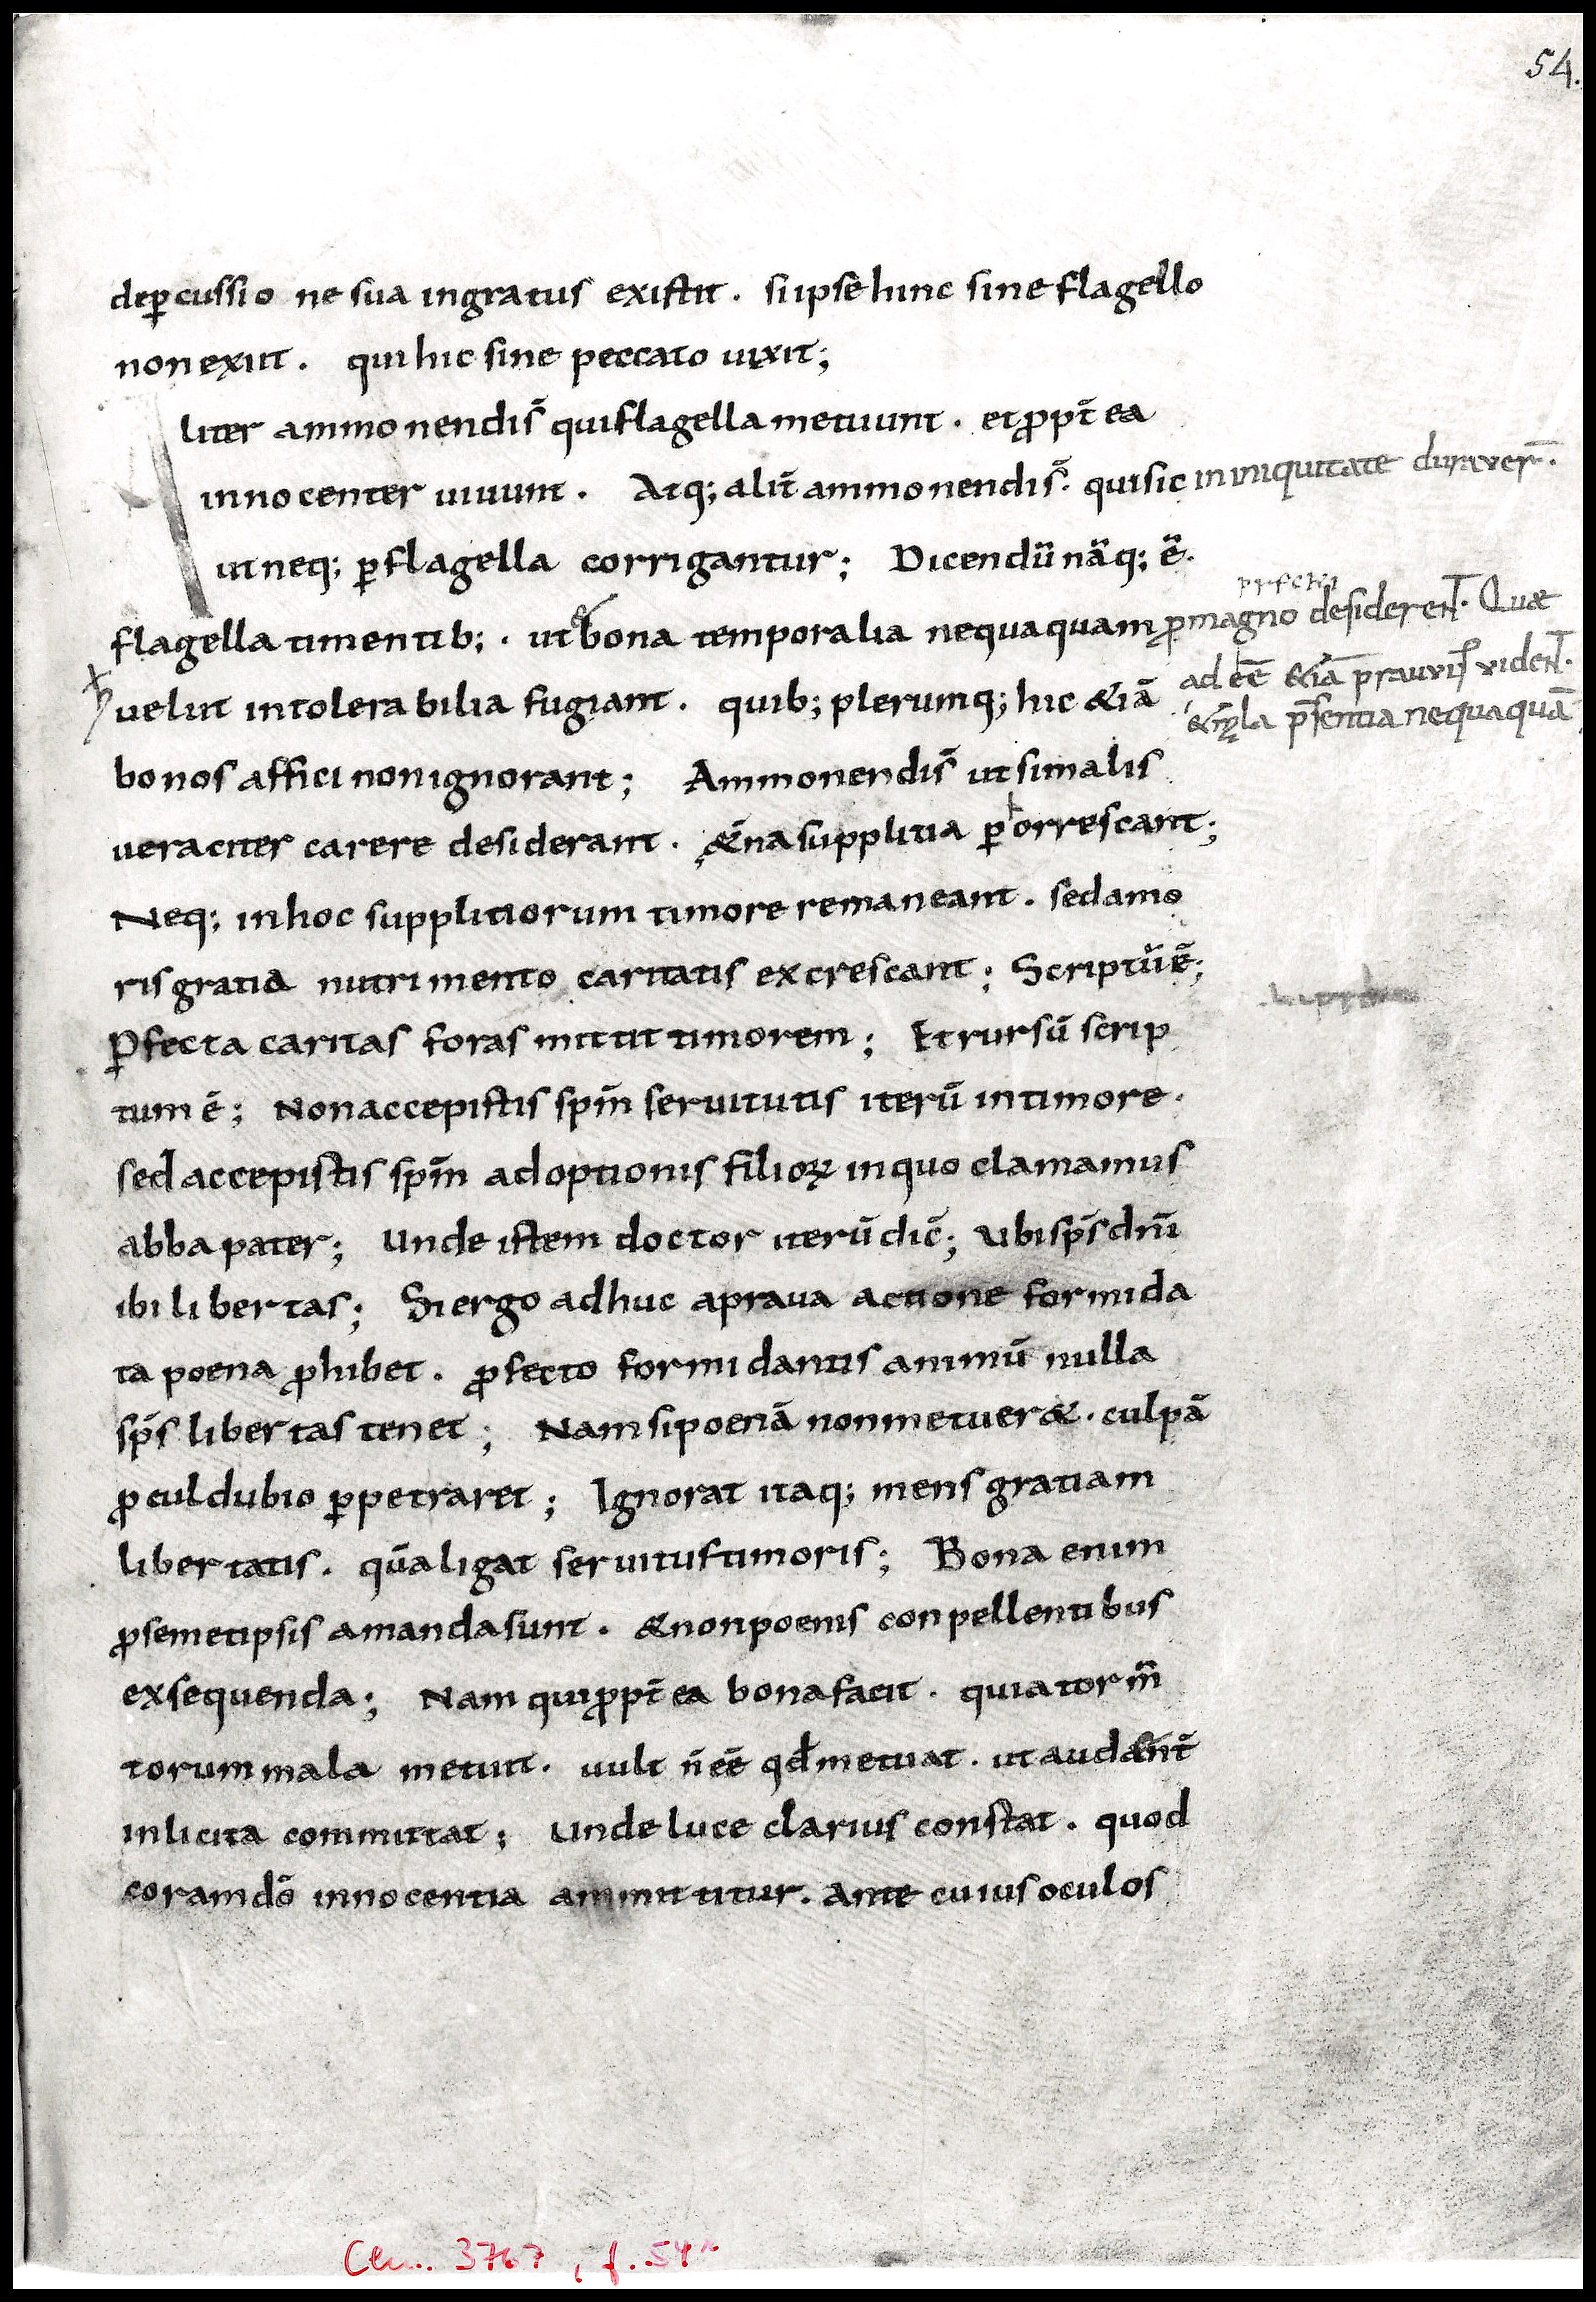 54.
dep̄cussione sua ingratus existit. si ipse hinc sine flagello
non exiit. qui hic sine peccato uixit;
Aliter ammonendis̄ qui flagella metuunt. et ꝓpt̄ea
innocenter uiuunt. Atq; alit̄ ammonendis̄. qui sic in iniquitate duraver̄.
ut neq; ꝑ flagella corrigantur; Dicendū nāq; ē.
flagella timentib;. ut bona temporalia nequaquam ꝓ magno desiderenT. Quae
ad eē &iā prauis uidenT.
& mala p̄sentia nequaquā
uelut intolerabilia fugiant. quib; plerumq; hic &iā
bonos affici non ignorant; Ammonendis̄ ut si malis
ueraciter carere desiderant. ęt̄na supplitia ꝑhorrescant;
Neq; in hoc supplitiorum timore remaneant. sed amo
ris gratia nutrimento caritatis excrescant; Scriptū ē;
ꝑfecta caritas foras mittit timorem; Et rursū scrip
tum ē; Non accepistis sp̄m seruitutis iterū in timore.
sed accepistis sp̄m adoptionis filioꝝ in quo clamamus
abba pater; Unde istem doctor iterū dic̄; Ubi sp̄s dn̄i
ibi libertas; Si ergo adhuc a praua actione formida
ta poena ꝓhibet. ꝓfecto formidantis animū nulla
sp̄s libertas tenet; Nam si poenā non metuer&. culpā
ꝓcul dubio ꝑpetraret; Ignorat itaq; mens gratiam
libertatis. quā ligat seruitus timoris; Bona enim
ꝓ semetipsis amanda sunt. & non poenis conpellentibus
exsequenda; Nam qui ꝓpt̄ea bona facit. quia torm̄
torum mala metuit. uult n̄ eē qđ metuat. ut audant̄
inlicita committat; Unde luce clarius constat. quod
coram dō innocentia ammittitur. Ante cuius oculos
Clm. 3767, f. 54r